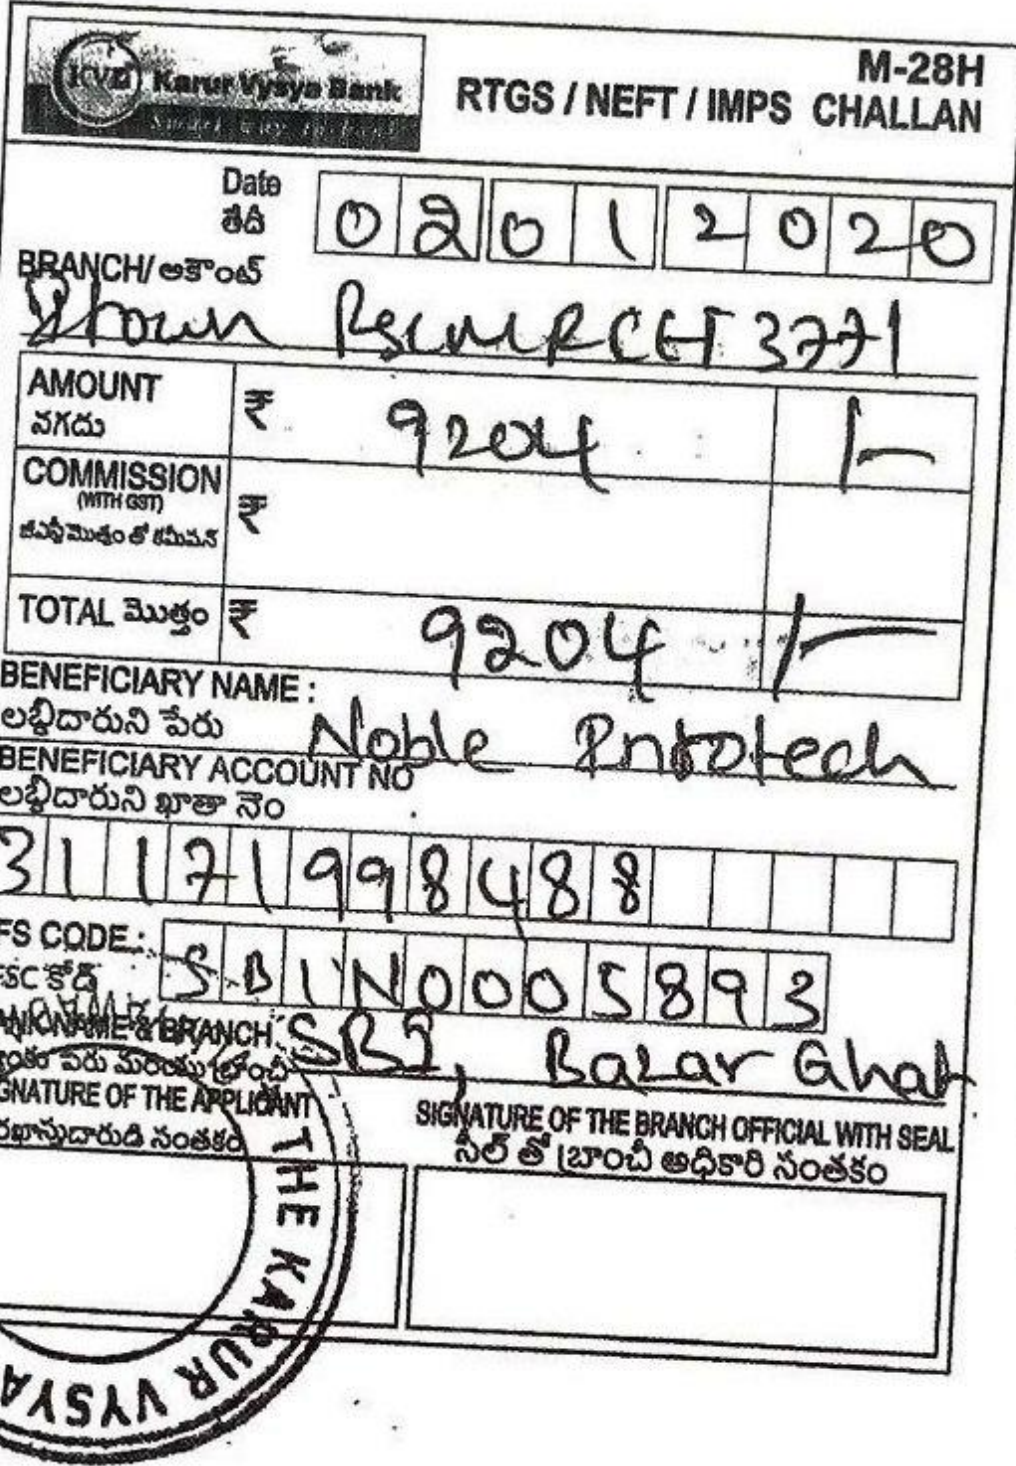 KVB Karur Vysya Bank
Smart way to bank
M-28H
RTGS / NEFT / IMPS CHALLAN
Date
తేదీ
0 2 0 1 2 0 2 0
BRANCH/ అకౌంట్
3771
AMOUNT ₹ 9204 /-
నగదు
COMMISSION ₹
(WITH GST)
జీఎస్టీ మొత్తం తో కమీషన్
TOTAL మొత్తం ₹ 9204 /-
BENEFICIARY NAME :
లబ్ధిదారుని పేరు Noble Infotech
BENEFICIARY ACCOUNT NO
లబ్ధిదారుని ఖాతా నెం
3 1 1 7 1 9 9 8 4 8 8
FS CODE :
SC కోడ్
S B I N 0 0 0 5 8 9 3
NAME & BRANCH SBI, Bazar Ghat
పేరు మరియు బ్రాంచీ
GNATURE OF THE APPLICANT
రఖాస్తుదారుడి సంతకం
SIGNATURE OF THE BRANCH OFFICIAL WITH SEAL
సీల్ తో బ్రాంచీ అధికారి సంతకం
THE KARUR VYSYA